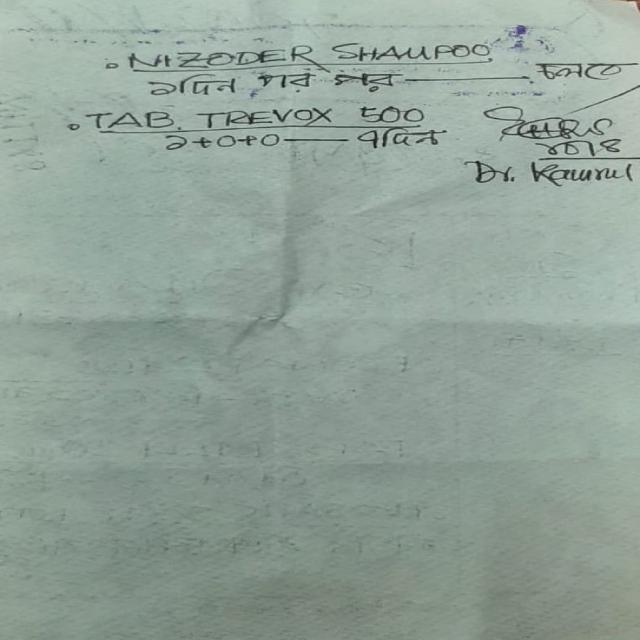 NIZODER SHAMPOO
২দিন পর পর ——— চলবে
TAB. TREVOX 500
১+০+০ —— ৭দিন
Dr. Kamrul